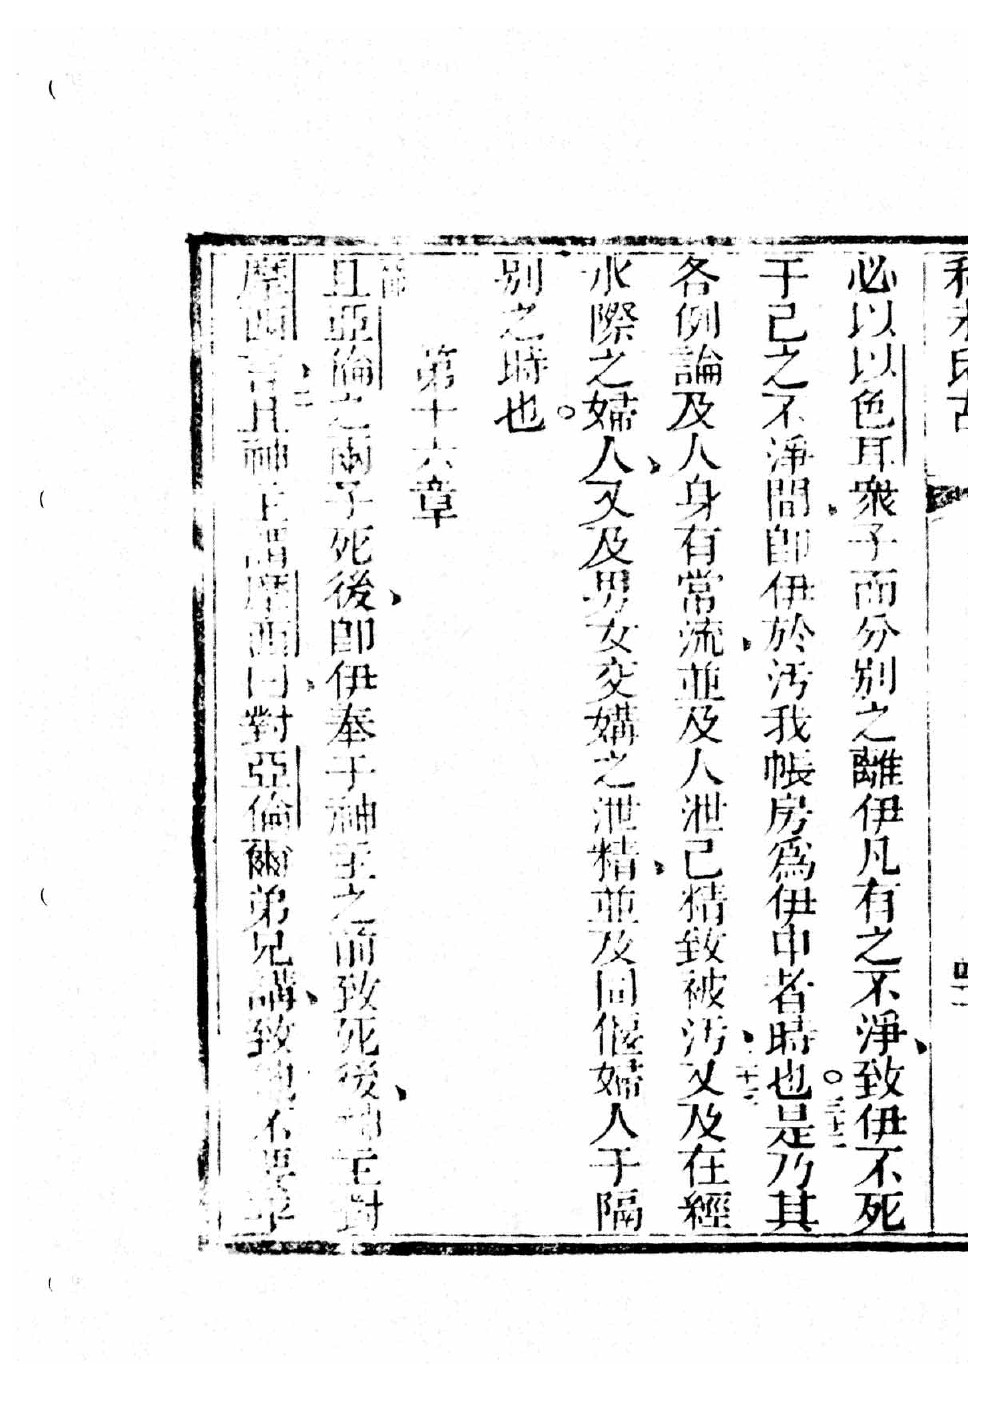 必以以色耳衆子而分别之離伊凡有之不淨、致伊不死
于己之不淨間、卽伊於汚我帳房爲伊中者時也。三十二是乃其
各例論及人身有常流、並及人泄己精致被汚、三十三又及在經
水際之婦人、又及男女交媾之泄精、並及同偃婦人于隔
别之時也。
第十六章
第一節
且亞倫之兩子死後、卽伊奉于神主之前致死後、神主對
摩西言、二且神主謂摩西曰、對亞倫爾弟兄講、致他不要平